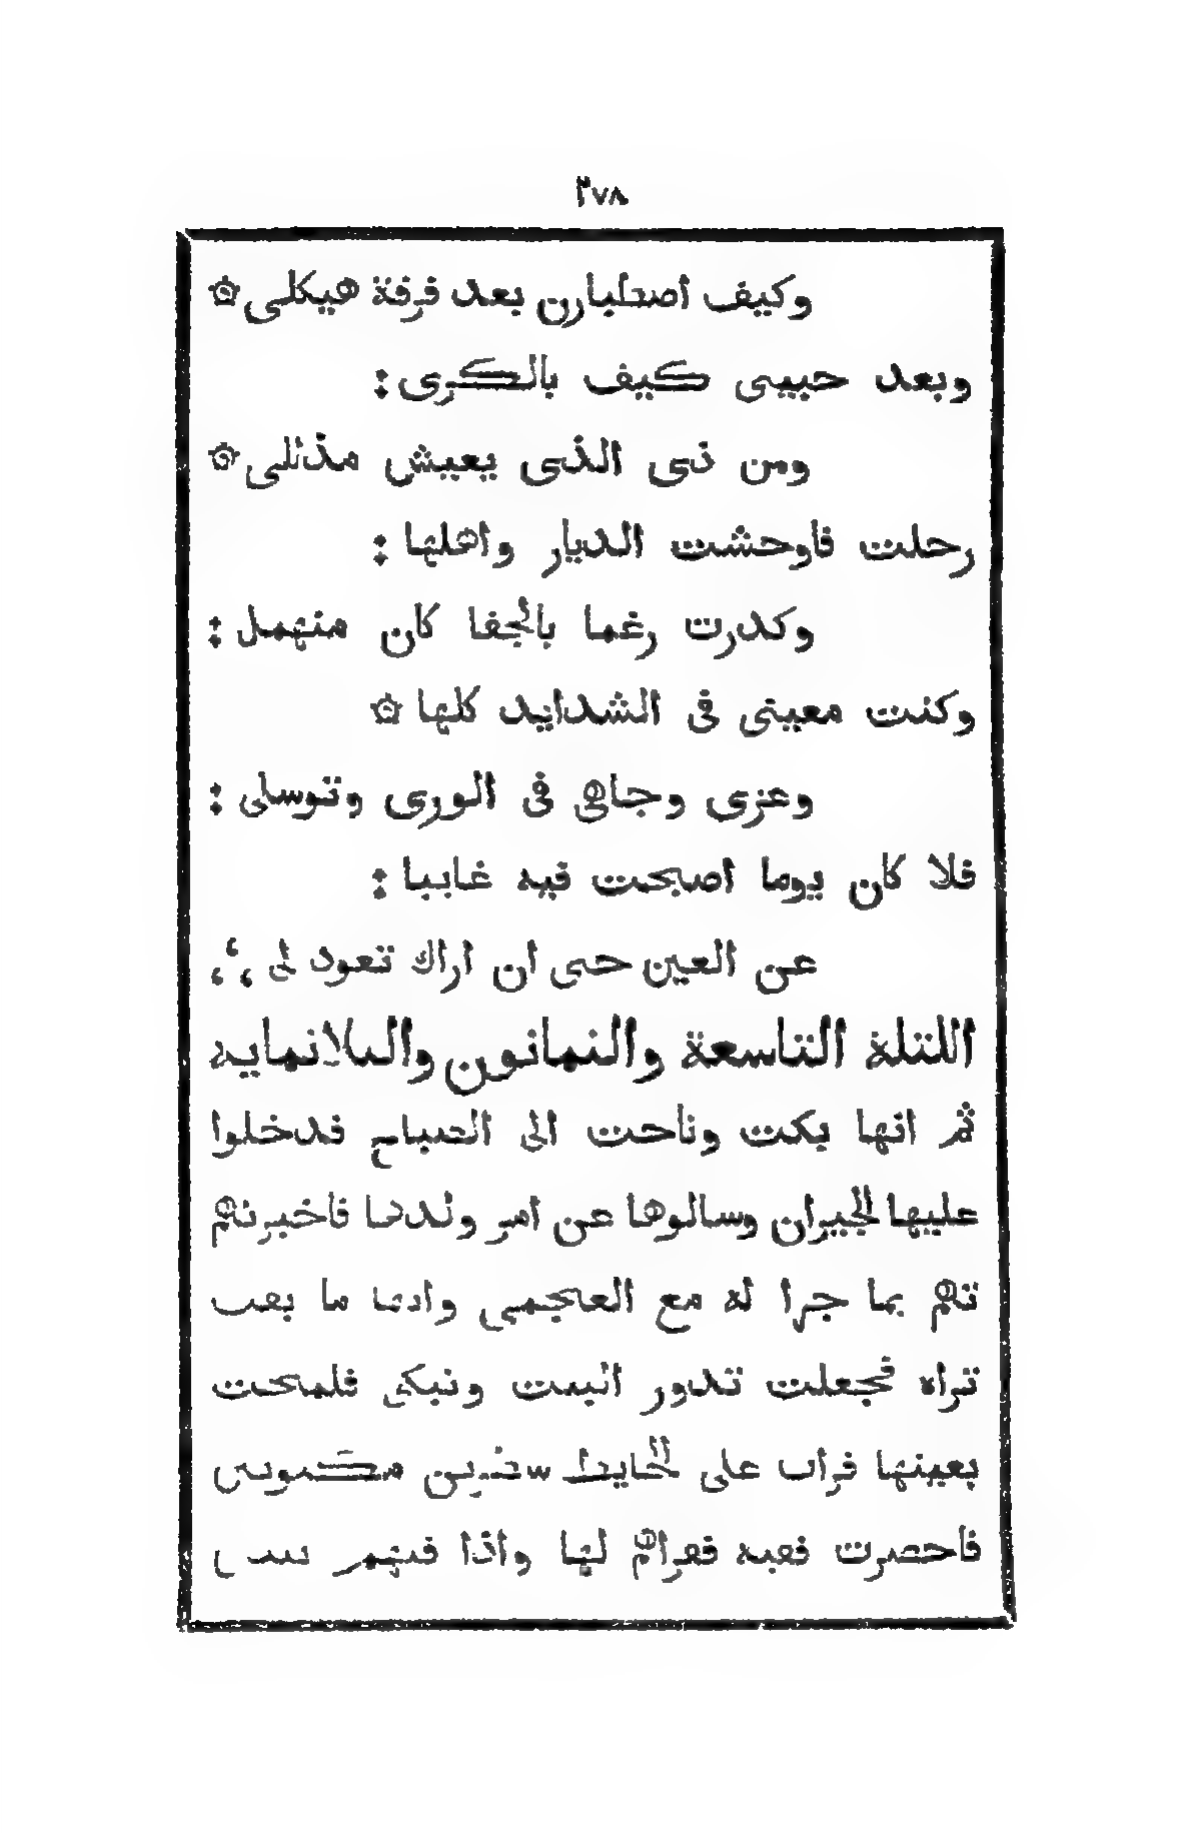 ٢٧٨
وكيف اصطبارن بعد فرقة هيكلى ۞
وبعد حبيبى كيف بالكرى :
ومن ذى الذى يعيش مذللى ۞
رحلت فاوحشت الديار واهلها :
وكدرت رغما بالجفا كان منهمل :
وكنت معينى فى الشدايد كلها ۞
وعزى وجاهى فى الورى وتوسلى :
فلا كان يوما اصبحت فيه غايبا :
عن العين حتى ان اراك تعود لى ،٬،
الليلة التاسعة والثمانون والثلاثمايه
ثم انها بكت وناحت الى الصباح فدخلوا
عليها الجيران وسالوها عن امر ولدها فاخبرتهم
تهم بما جرا له مع العجمى وانها ما بقت
تراه فجعلت تدور البيت وتبكى فلمحت
بعينها فرات على الحايط سطرين مكتوبين
فاحضرت فقيه فقراهم لها واذا فيهم